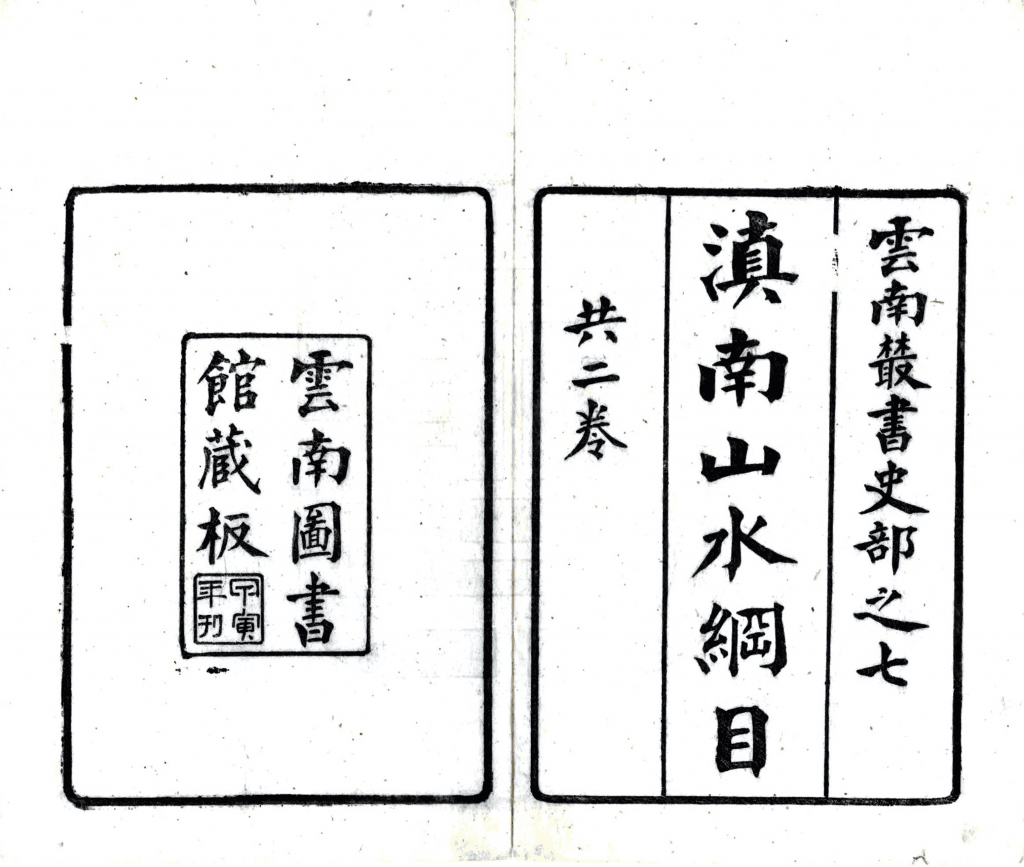 雲南叢書史部之七
滇南山水綱目
共二卷
雲南圖書
館蔵板
甲寅
年刊